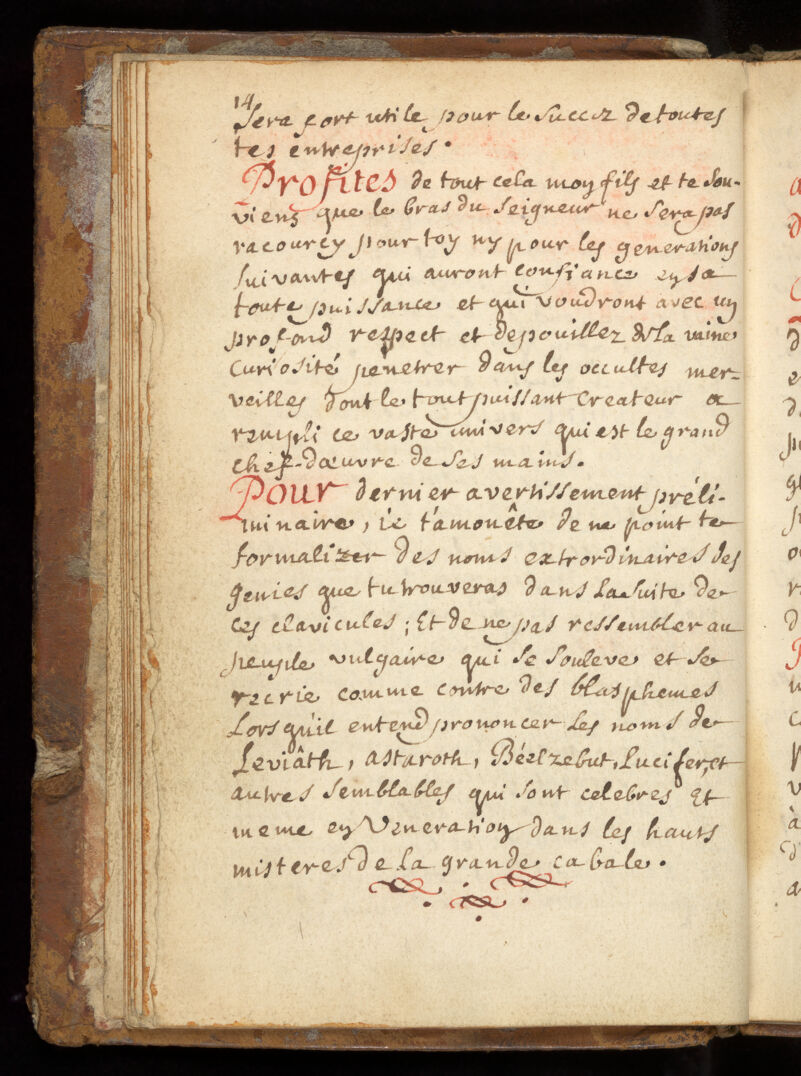 14
Sera fort utile pour le succez de toutes
tes entreprises.
Profites de tout cela moy fils et te sou-
viens que le bras du Seigneur ne sera pas
racourcy pour toy ny pour les generations
suivantes qui auront confiance en sa
toute puissance et qui voudront avec un
profond respect et depouillez de la vaine
curiosité pénetrer dans les occultes mer-
veilles dont le tout puissant Createur a
rempli ce vaste univers qui est le grand
chef-dœuvre de ses mains.
Pour dernier avertissement préli-
minaire, ie t'amonête de ne point te
formalizer des noms extrordinaires des
genies que tu trouveras dans la suite de
ces clavicules; Et de ne pas ressembler au
peuple vulgaire qui se souleve et se
recrie comme contre des blasphemes
Lors qu'il entend prononcer les noms de
Leviâth, astaroth, Béelzebut, Lucifer, et
autres semblables qui sont celebres Et
meme en Veneration dans les hauts
misteres de la grande cabale.